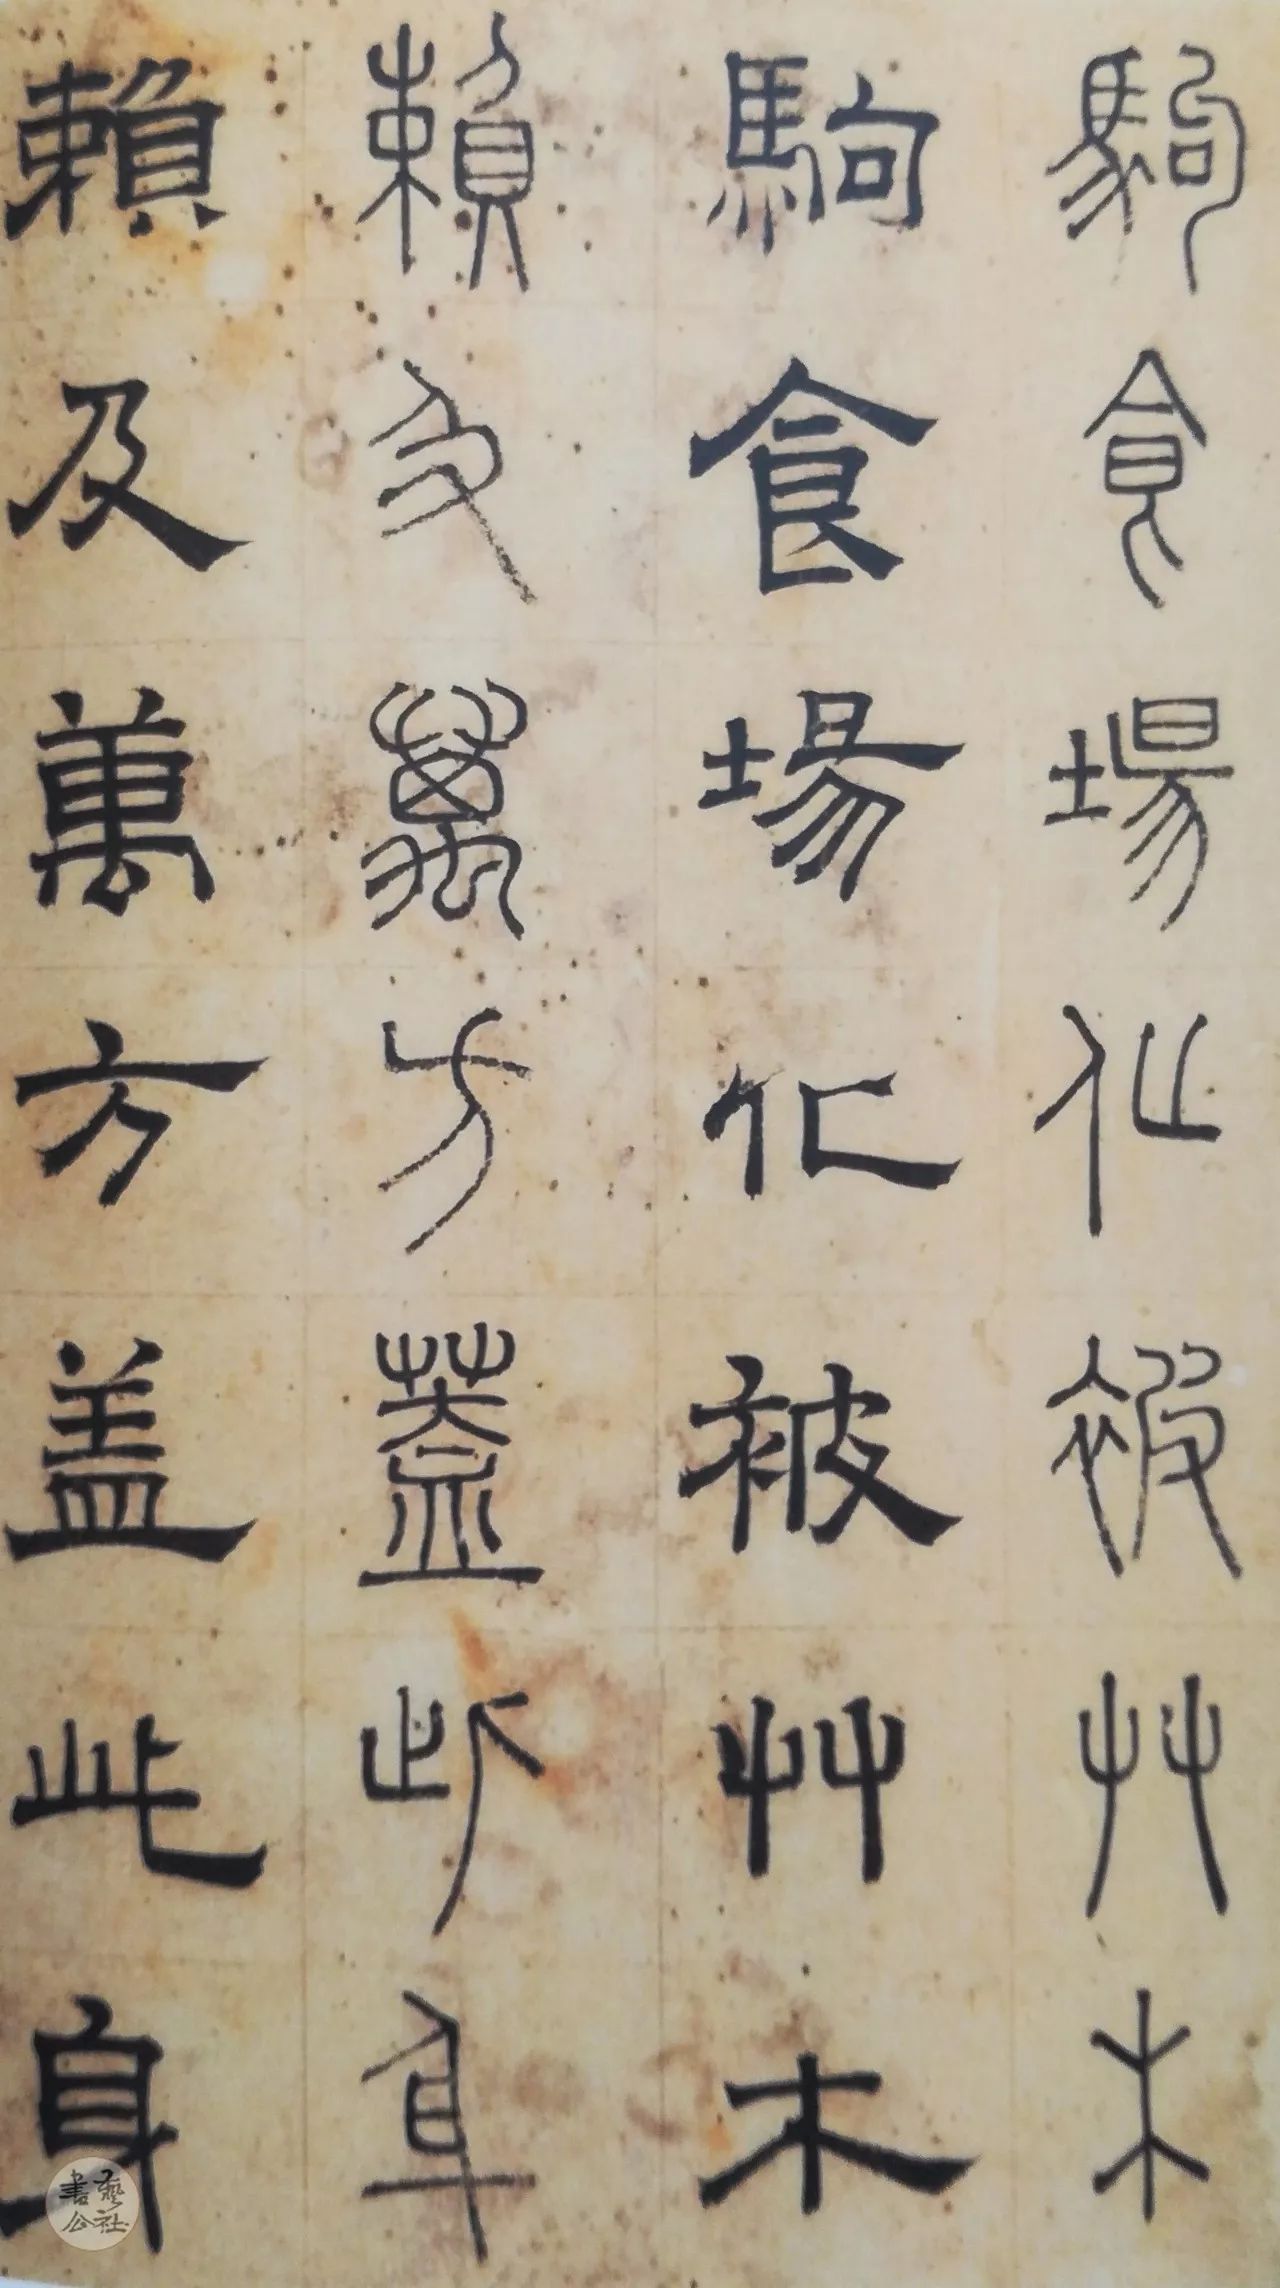 駒食場化被艸木
駒食場化被艸木
賴及萬方蓋此身
賴及萬方盖此身
書藝公社